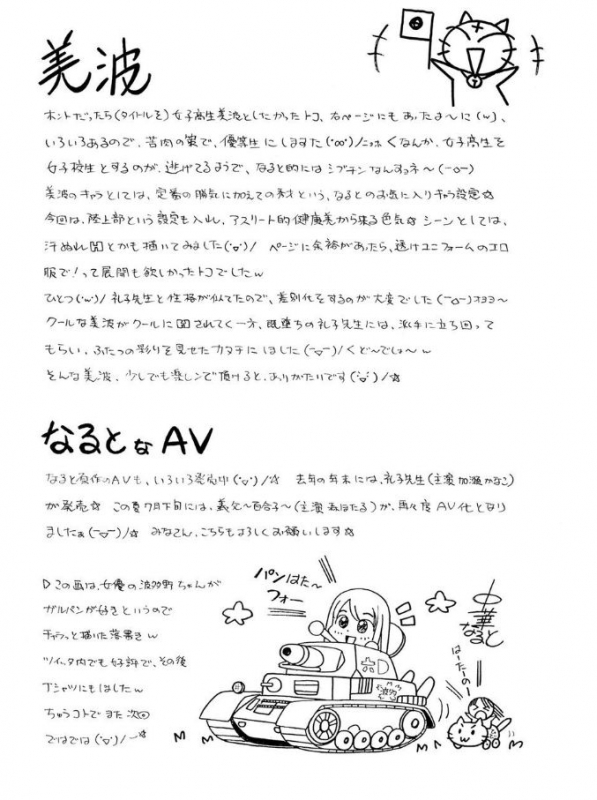 美波
ホントだったら(タイトルを)女子高生美波としたかったトコ、右ページにもあったよ〜に(w)、
いろいろあるので、苦肉の策で、優等生にしますた(°∞°)/ くなんか、女子高生を
女子校生とするのが、逃げてるようで、なると的にはシブチンなんすョネ〜(-o-)
美波のキャラとしては、定番の勝気に加えての秀才という、なるとのお気に入りキャラ設定☆
今回は、陸上部という設定も入れ、アスリート的健康美から来る色気☆シーンとしては、
汗ぬれ図とかも描いてみました('▽')/ ページに余裕があったら、透けユニフォームのエロ
服で!って展開も欲しかったトコでしたw
ひとつ('w')/ 礼子先生と性格が似てたので、差別化をするのが大変でした(-o-)ヨヨヨ〜
クールな美波がクールに図されてく一方、既堕ちの礼子先生には、派手に立ち回って
もらい、ふたつの彩りを見せたカタチにはした(-▽-)/くど〜でしょ〜w
そんな美波、少しでも楽しンで頂けると、ありがたいです('▽')/☆
なるとなAV
なると原作のAVも、いろいろ発売中('▽')/☆ 去年の年末には、礼子先生(主演 加瀬かなこ)
が発売☆ この夏7月下旬には、義父〜百合子〜(主演 ほたる)が、再々度AV化となり
ましたぁ(-▽-)/☆ みなさん、こちらもよろしくお願いします☆
この画は、女優の波多野ちゃんが
ガルパンが好きというので
チャラっと描いた落書きw
ツイッタ内でも好評で、その後
Tシャツにもはしたw
ちゅうコトでまた次回
ではでは('▽')/☆
パンはた〜
フォー
中華
なると
D